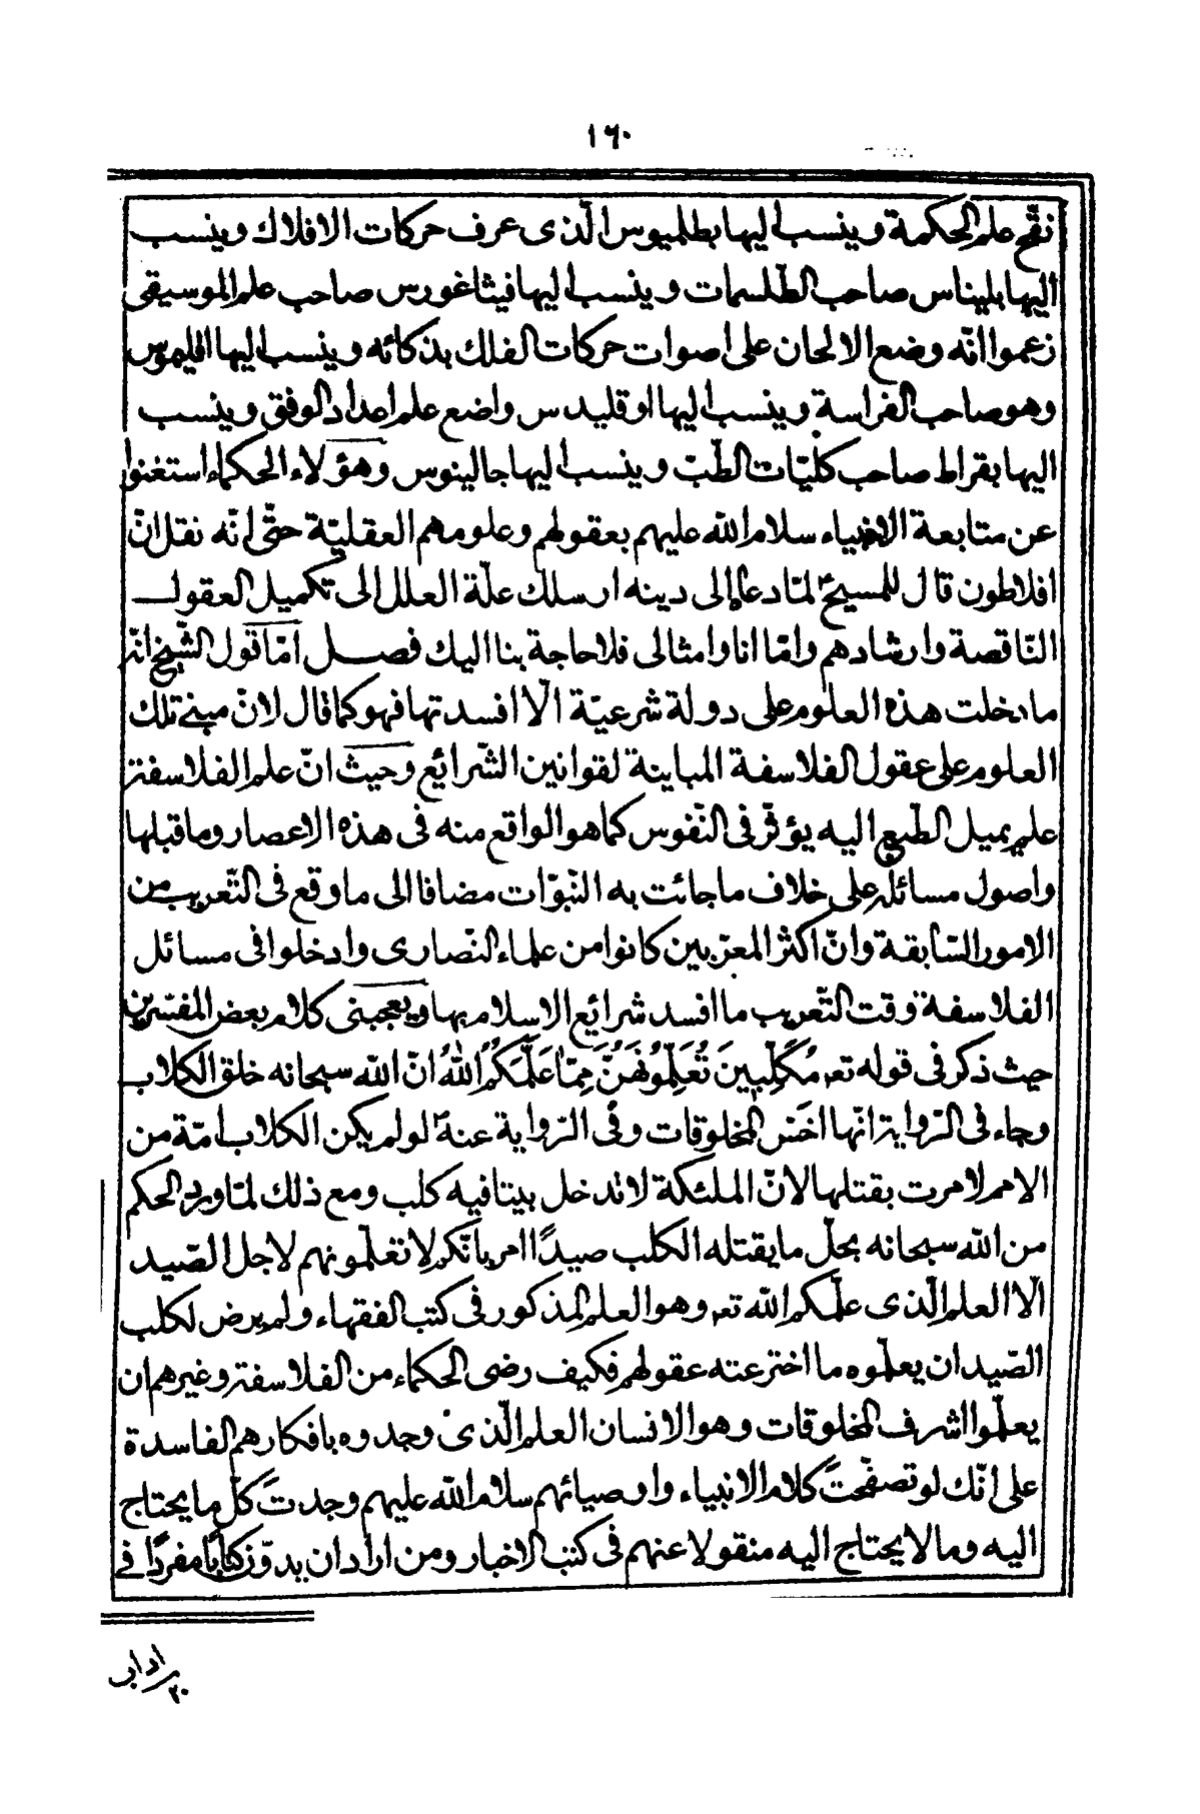 ١٦٠
نقّح علم الحكمة وينسب اليها بطلميوس الّذى عرف حركات الافلاك وينسب
اليها بليناس صاحب الطّلسمات وينسب اليها فيثاغورس صاحب علم الموسيقى
زعموا انّه وضع الالحان على اصوات حركات الفلك بذكائه وينسب اليها اقليموس
وهو صاحب الفراسة وينسب اليها اوقليدس واضع علم اعداد الوفق وينسب
اليها بقراط صاحب كلّيّات الطّبّ وينسب اليها جالينوس وهؤلاء الحكماء استغنوا
عن متابعة الانبياء سلام الله عليهم بعقولهم وعلومهم العقليّة حتّى انّه نقل انّ
افلاطون قال للمسيحؑ لمّا دعاه الى دينه ارسلك علّة العلل الى تكميل العقول
النّاقصة وارشادهم وامّا انا وامثالى فلا حاجة بنا اليك فصل امّا قول الشّيخ انّه
ما دخلت هذه العلوم على دولة شرعيّة الّا افسدتها فهو كما قال لانّ مبنى تلك
العلوم على عقول الفلاسفة المباينة لقوانين الشّرايع وحيث انّ علم الفلاسفة
علم يميل الطّبع اليه يؤثّر فى النّفوس كما هو الواقع منه فى هذه الاعصار وما قبلها
واصول مسائله على خلاف ما جائت به النّبوّات مضافا الى ما وقع فى التّعريب من
الامور السّابقة وانّ اكثر المعرّبين كانوا من علماء النّصارى وادخلوا فى مسائل
الفلاسفة وقت التّعريب ما افسد شرايع الاسلام بها ويعجبنى كلام بعض المفسّرين
حيث ذكر فى قوله تعه مُكَلِّبينَ تُعَلِّمُونَهُنَّ مِمّا عَلَّمَكُمُ اللّٰهُ انّ الله سبحانه خلق الكلاب
وجاء فى الرّواية انّها اخسّ المخلوقات وفى الرّواية عنهؑ لو لم يكن الكلاب امّة من
الامم لامرت بقتلها لانّ الملئكة لا تدخل بيتا فيه كلب ومع ذلك لمّا ورد الحكم
من الله سبحانه بحلّ ما يقتله الكلب صيدًا امر بانّكم لا تعلّمونهم لاجل الصّيد
الّا العلم الّذى علّمكم الله تعه وهو العلم المذكور فى كتب الفقهاء ولم يرض لكلب
الصّيد ان يعلّموه ما اخترعته عقولهم فكيف رضى الحكماء من الفلاسفة وغيرهم ان
يعلّموا اشرف المخلوقات وهو الانسان العلم الّذى وجدوه بافكارهم الفاسدة
على انّك لو تصفّحتَ كلام الانبياء واوصيائهم سلام الله عليهم وجدتَ كلّ ما يحتاج
اليه وما لا يحتاج اليه منقولا عنهم فى كتب الاخبار ومن اراد ان يدوّن كتابًا مفردًا فى